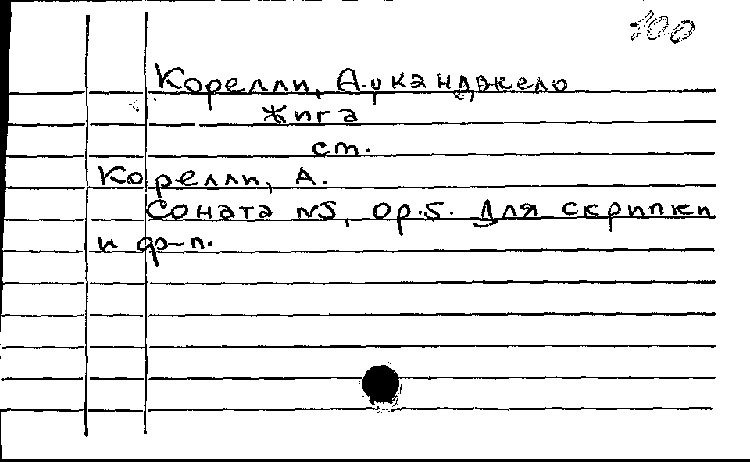 100
Корелли, Арканджело
Жига
ст.
Корелли, А.
Соната №5, ор.5. Для скрипки
и ф-п.